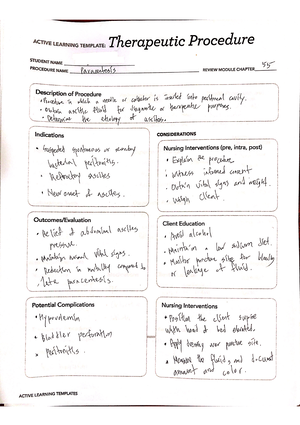 ACTIVE LEARNING TEMPLATE: Therapeutic Procedure
STUDENT NAME
PROCEDURE NAME Paracentesis REVIEW MODULE CHAPTER 55
Description of Procedure
• Procedure in which a needle or catheter is inserted into peritoneal cavity.
• Obtain ascitic fluid for diagnostic or therapeutic purposes.
• Determine the etiology of ascites.
Indications
• Suspected spontaneous or secondary
bacterial peritonitis.
• Refractory ascites
• New onset of ascites.
CONSIDERATIONS
Nursing Interventions (pre, intra, post)
• Explain the procedure
• witness informed consent
• Obtain vital signs and weight.
• Weigh client.
Outcomes/Evaluation
• Relief of abdominal ascites
pressure.
• Maintain normal vital signs.
• Reduction in mortality compared to
late paracentesis.
Client Education
• Avoid alcohol
• Maintain a low sodium diet.
• Monitor puncture site for bleeding
or leakage of fluid.
Potential Complications
• Hypovolemia
• Bladder perforation
• Peritonitis.
Nursing Interventions
• Position the client supine
with head of bed elevated.
• Apply dressing over puncture site.
• Measure the fluid, and document
amount and color.
ACTIVE LEARNING TEMPLATES